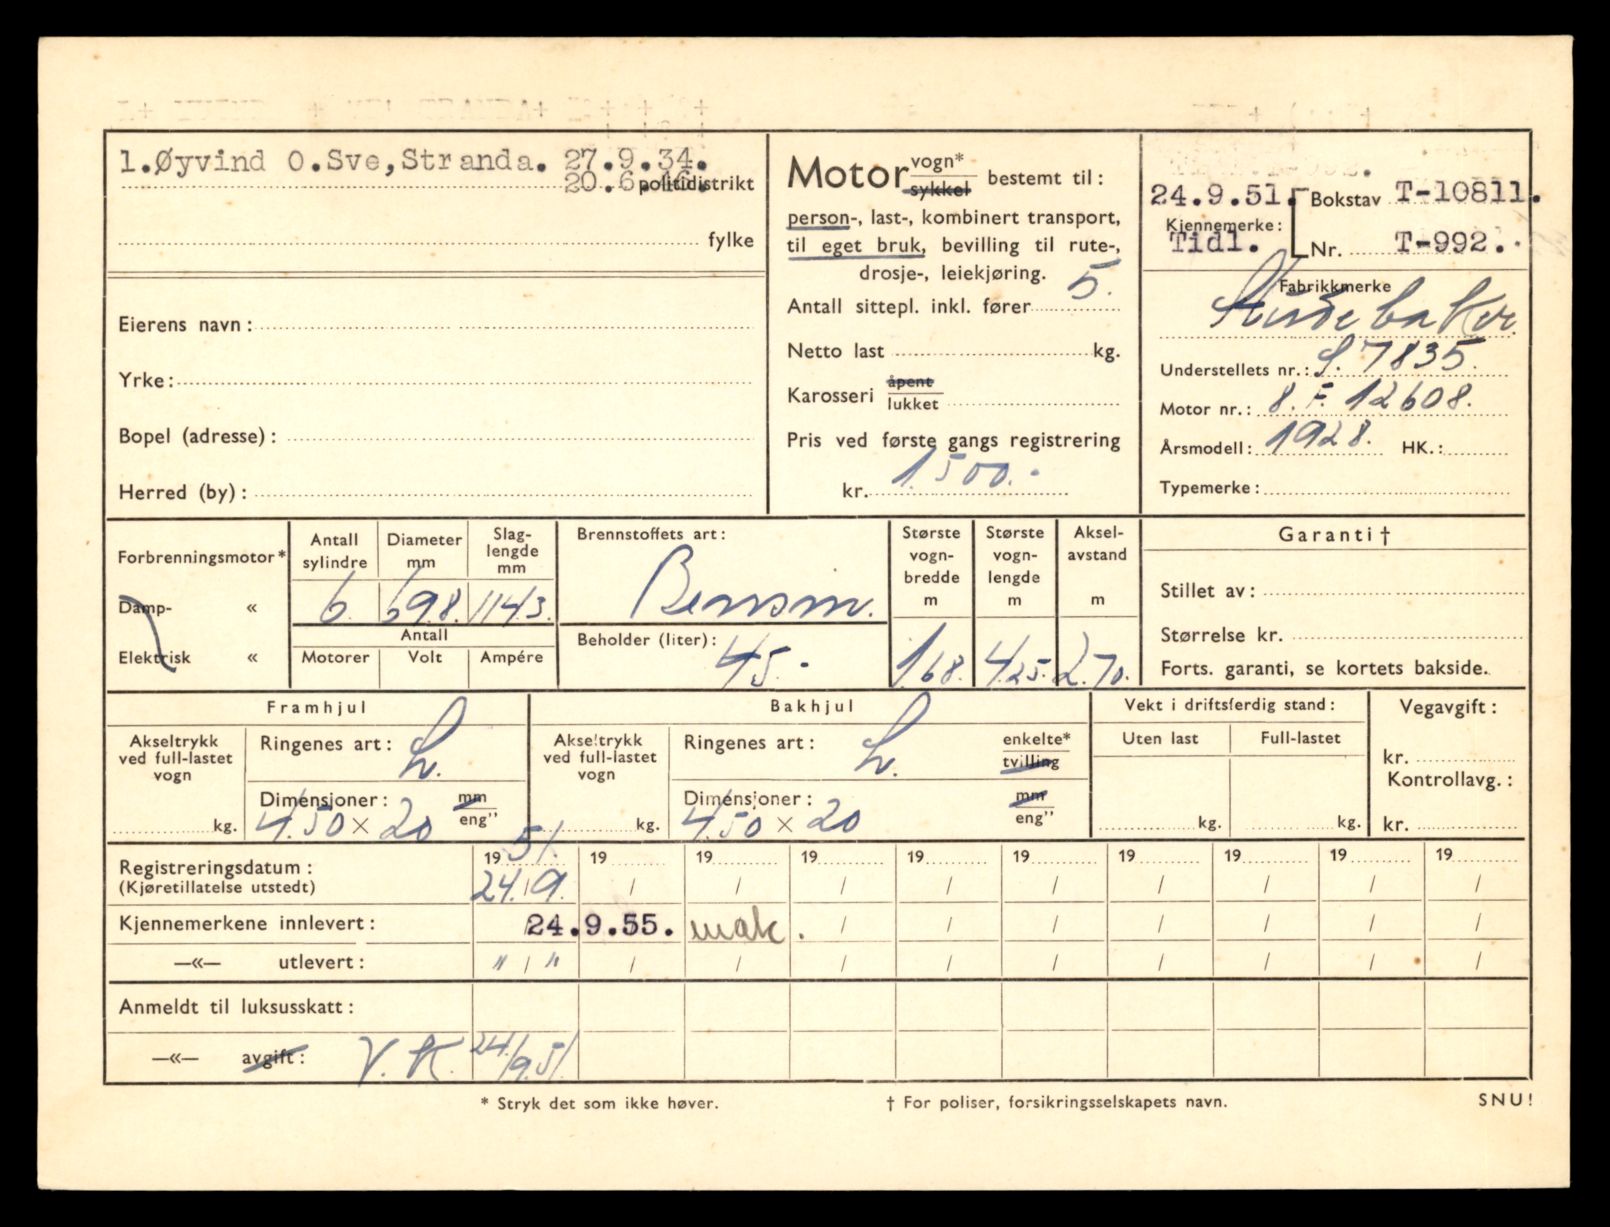 1.Øyvind O.Sve,Stranda. 27.9.34.
20.6. politidistrikt
fylke
Eierens navn:
Yrke:
Bopel (adresse):
Herred (by):
Motor vogn* sykkel bestemt til:
person-, last-, kombinert transport,
til eget bruk, bevilling til rute-,
drosje-, leiekjøring.
Antall sittepl. inkl. fører 5.
Netto last kg.
Karosseri åpent lukket
Pris ved første gangs registrering
kr. 1.500.-
24.9.51. Bokstav T-10811.
Kjennemerke:
Tidl. Nr. T-992.
Fabrikkmerke
Studebaker.
Understellets nr.: S. 7835.
Motor nr.: 8. F. 12608.
Årsmodell: 1928. HK.:
Typemerke:
Forbrenningsmotor*
Damp- «
Elektrisk «
Antall sylindre
Diameter mm
Slag-lengde mm
6. 69.8. 114.3.
Antall
Motorer Volt Ampére
Brennstoffets art:
Bensin.
Beholder (liter):
45.-
Største vogn-bredde m
Største vogn-lengde m
Aksel-avstand m
1.68. 4.25. 2.70.
Garanti †
Stillet av:
Størrelse kr.
Forts. garanti, se kortets bakside.
Framhjul
Akseltrykk ved full-lastet vogn
kg.
Ringenes art: L.
Dimensjoner: mm eng"
4.50 x 20
Bakhjul
Akseltrykk ved full-lastet vogn
kg.
Ringenes art: L. enkelte* tvilling
Dimensjoner: mm eng"
4.50 x 20
Vekt i driftsferdig stand:
Uten last Full-lastet
kg. kg.
Vegavgift:
kr.
Kontrollavg.:
kr.
Registreringsdatum: 19 51. 19 19 19 19 19 19 19 19 19
(Kjøretillatelse utstedt) 24./9. / / / / / / / / /
Kjennemerkene innlevert: 24.9.55. mak. / / / / / / /
—«— utlevert: " / " / / / / / / / / /
Anmeldt til luksusskatt:
—«— avgift: V.K. 24./9.51.
* Stryk det som ikke høver.
† For poliser, forsikringsselskapets navn.
SNU!